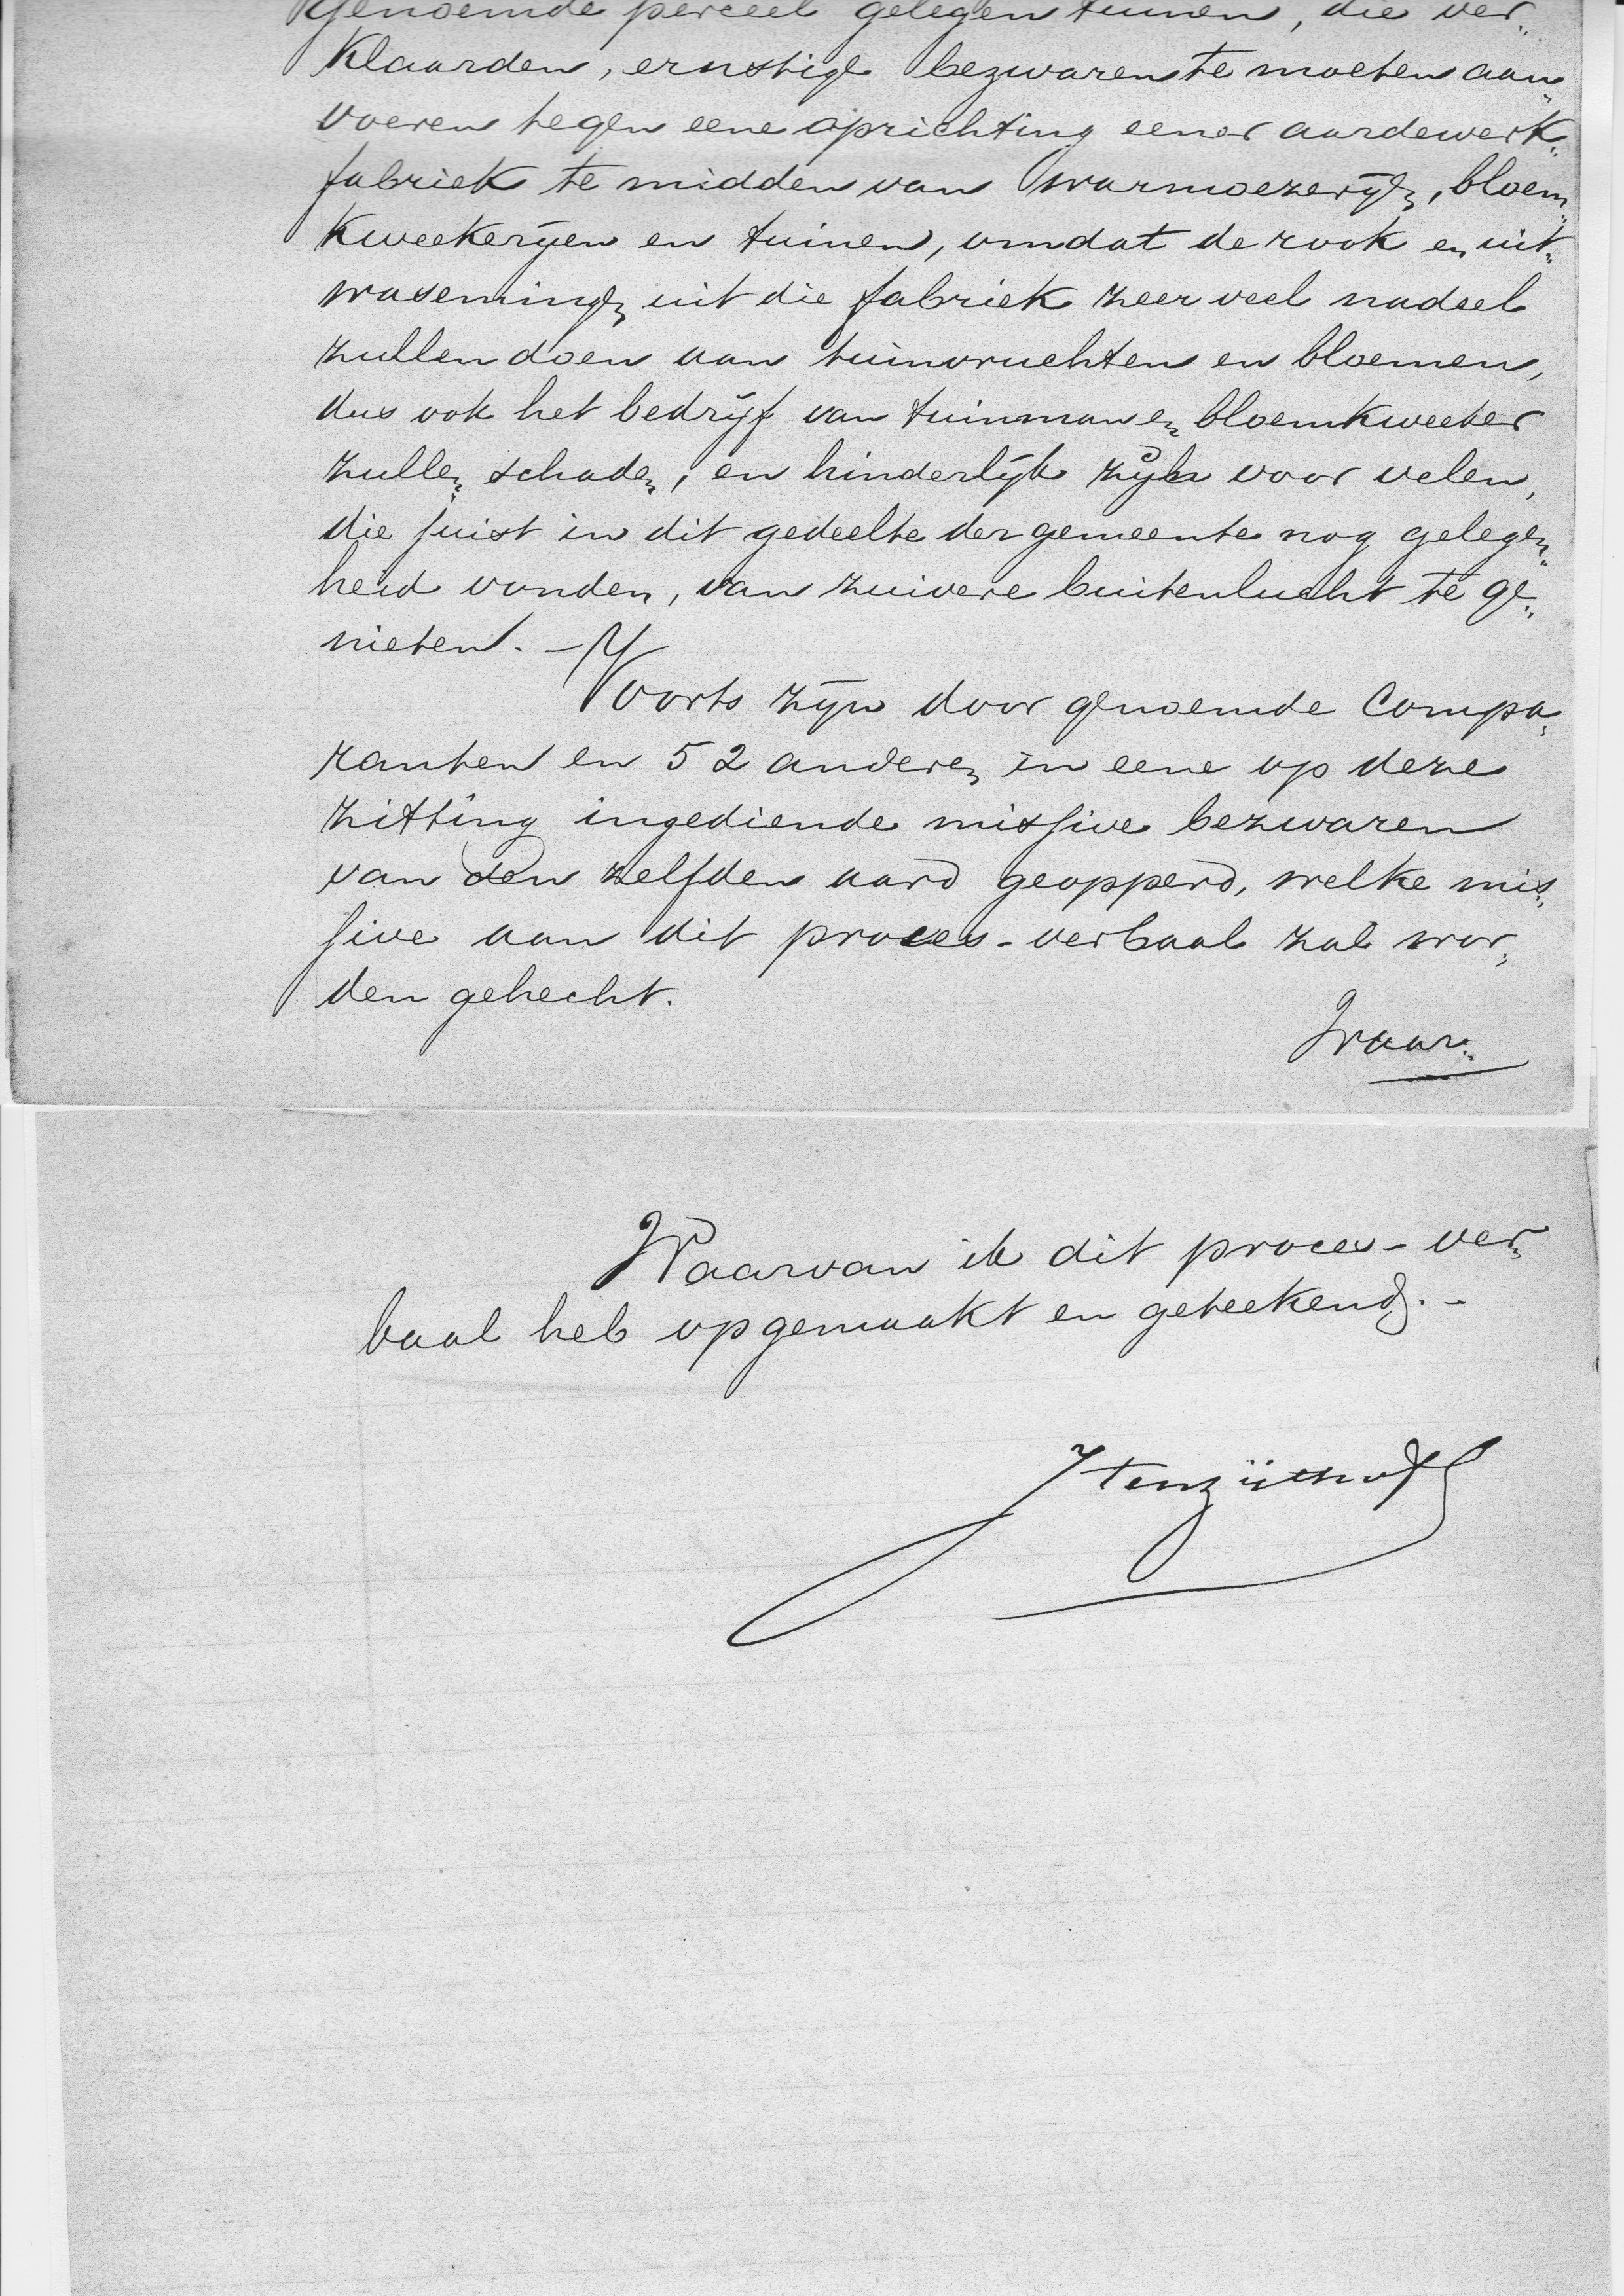 genoemde perceel gelegen tuinen, die ver„
klaarden, ernstige bezwaren te moeten aan„
voeren tegen eene oprichting eener aardewerk„
fabriek te midden van warmoezerijen, bloem„
kweekerijen en tuinen, omdat de rook en uit„
wasemingen uit die fabriek zeer veel nadeel
zullen doen aan tuinvruchten en bloemen,
dus ook het bedrijf van tuinman en bloemkweeker
zullen schaden, en hinderlijk zijn voor velen,
die juist in dit gedeelte der gemeente nog gelegen„
heid vonden, van zuivere buitenlucht te ge„
nieten. —
Voorts zijn door genoemde Compa„
ranten en 52 anderen in eene op deze
zitting ingediende missive bezwaren
van den zelfden aard geopperd, welke mis„
sive aan dit proces-verbaal zal wor„
den gehecht.
Waar„
Waarvan ik dit proces-ver„
baal heb opgemaakt en geteekend. —